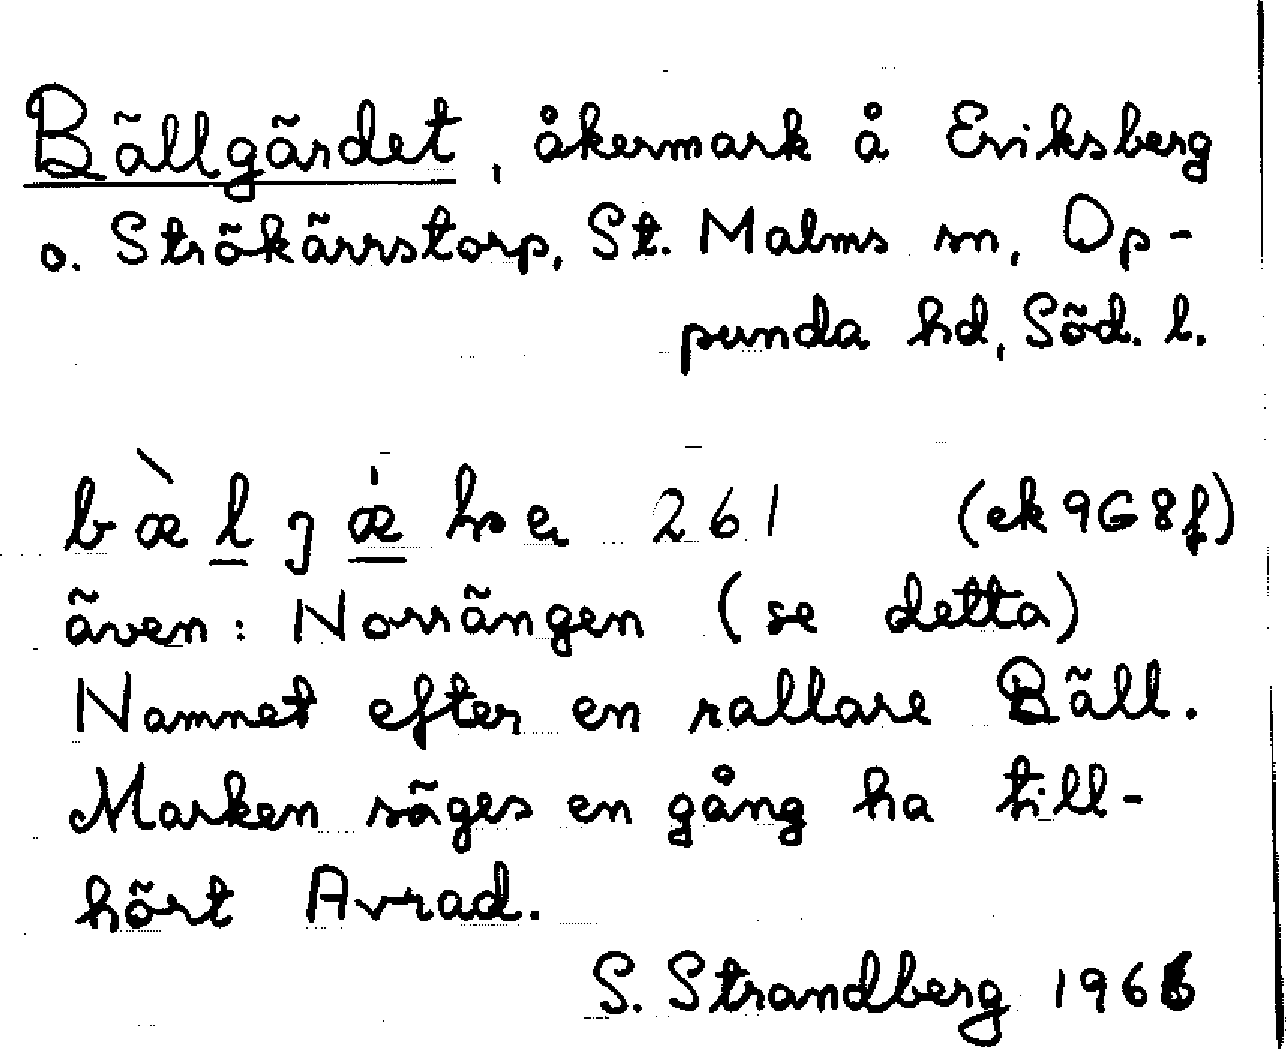 Bällgärdet, åkermark å Eriksberg
o. Strökärrstorp, St. Malms sn, Op-
punda hd, Söd. l.
261 (ek 9G8f)
även: Norrängen (se detta)
Namnet efter en rallare Bäll.
Marken säges en gång ha till-
hört Avrad.
S. Strandberg 1966